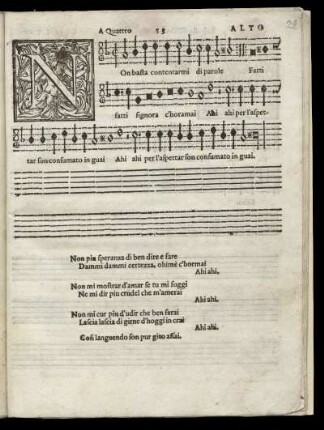 A Quattro 15 ALTO
N
On basta contentarmi di parole Fatti
fatti signora c'hormai Ahi ahi per l'aspet-
tar son consumato in guai Ahi ahi per l'aspettar son consumato in guai.
Non piu speranza di ben dire e fare
Dammi dammi certezza, ohime c'hormai
Ahi ahi.
Non mi mostrar d'amar se tu mi fuggi
Ne mi dir piu crudel che m'amerai
Ahi ahi.
Non mi cur piu d'udir che ben farai
Lascia lascia di girne d'hoggi in crai
Ahi ahi.
Cosi languendo son pur gito assai.